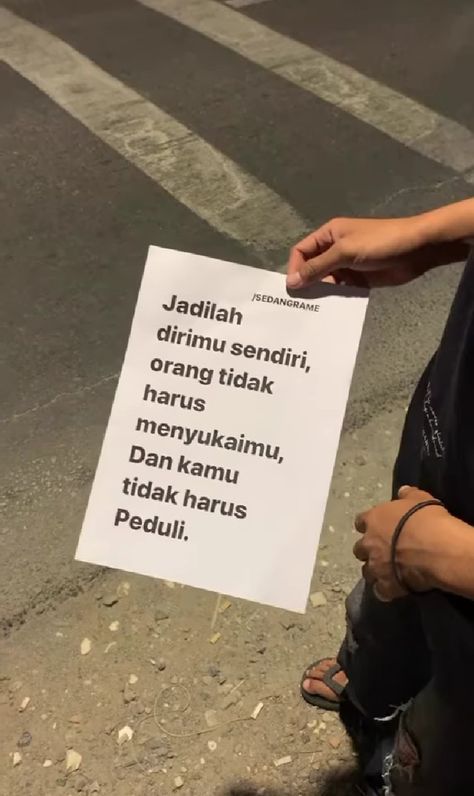 /SEDANGRAME
Jadilah
dirimu sendiri,
orang tidak
harus
menyukaimu,
Dan kamu
tidak harus
Peduli.